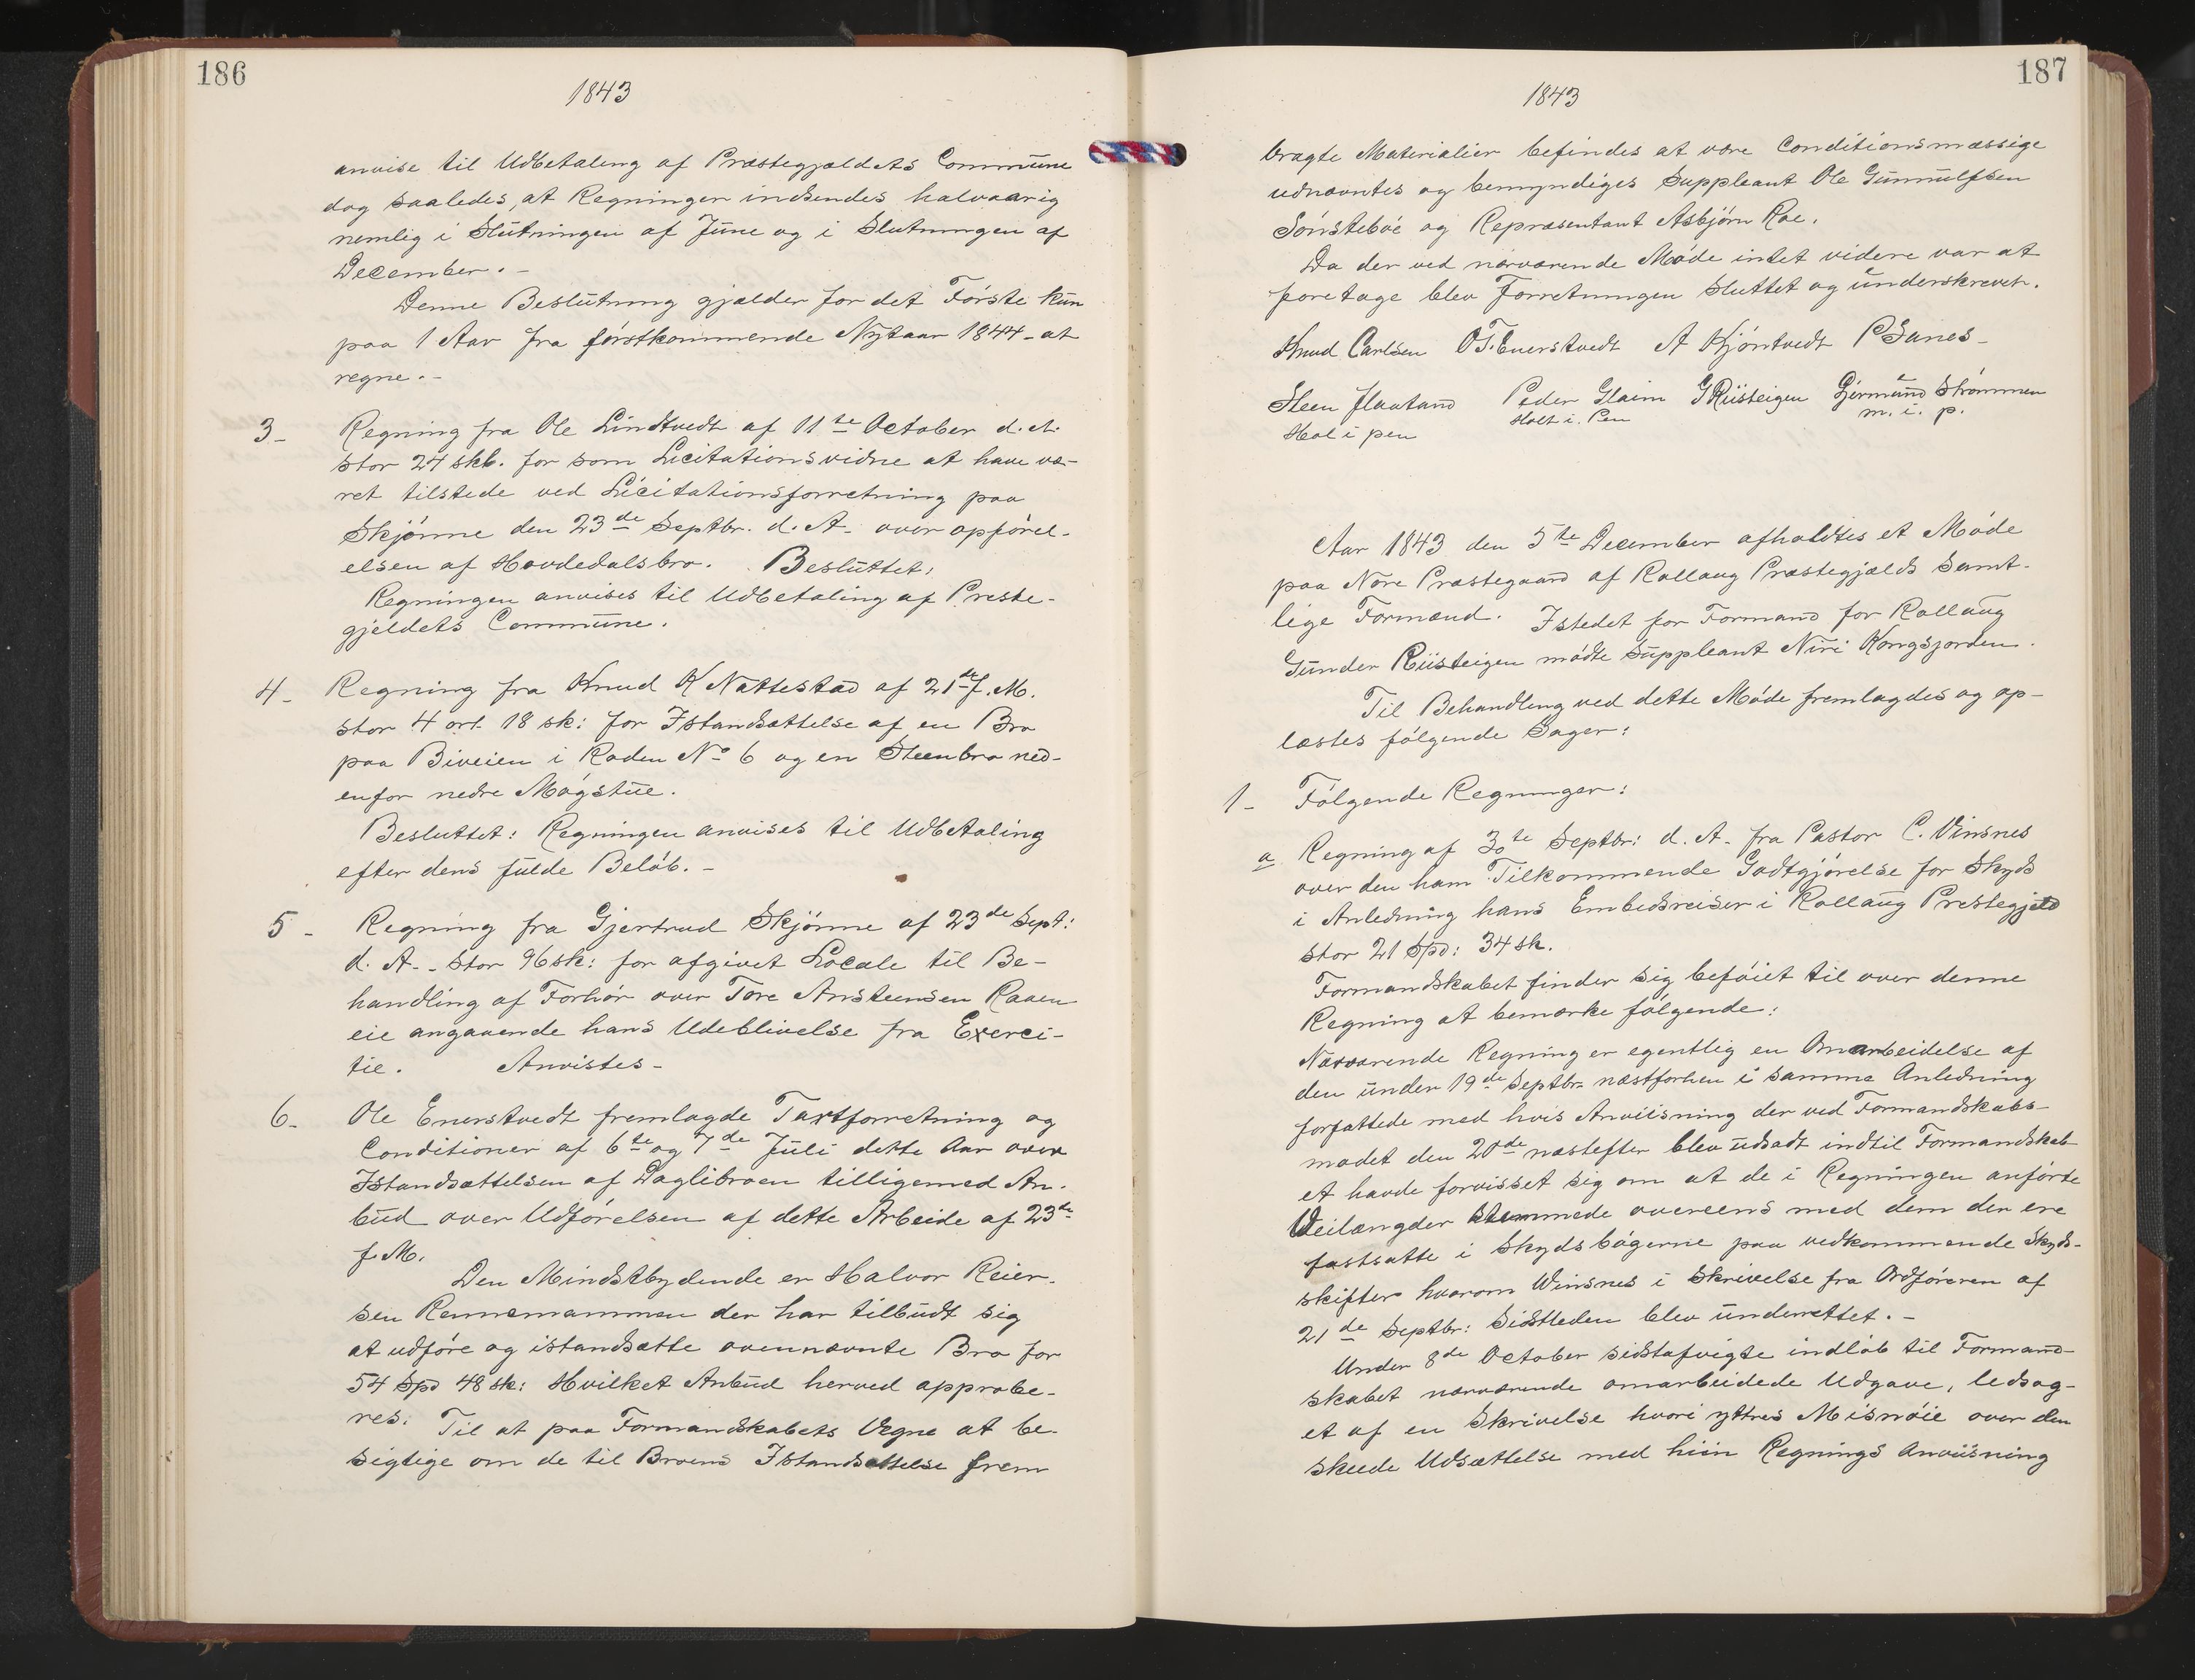 186
1843
anvise til Udbetaling af Præstegjældets Commune
dog saaledes, at Regningen indsendes halvaarig
nemlig i Slutningen af June og i Slutningen af
December. -
Denne Beslutning gjælder for det Første kun
paa 1 Aar fra førstkommende Nytaar 1844 - at
regne. -
3 - Regning fra Ole Lindtvedt af 11te October d. A.
stor 24 skb. for som Licitationsvidne at have væ-
ret tilstede ved Licitationsforretning paa
Skjønne den 23de Septbr. d. A. over opførel-
elsen af Hovdedalsbro. Besluttet,
Regningen anvises til Udbetaling af Preste-
gjeldets Commune.
4 - Regning fra Knud K Nattestad af 21de f. M.
stor 4 ort 18 sk: for Istandsættelse af en Bro
paa Biveien i Roden No 6 og en Steenbro ned-
enfor nedre Møgstue.
Besluttet: Regningen anvises til Udbetaling
efter dens fulde Beløb. -
5 - Regning fra Gjertrud Skjønne af 23de Sept:
d. A. - stor 96 sk: for afgivet Locale til Be-
handling af Forhør over Tore Ansteensen Raaen
eie angaaende hans Udeblivelse fra Exerci-
tie. Anvistes -
6 - Ole Enerstvedt fremlagde Taxtforretning og
Conditioner af 6te og 7de Juli dette Aar over
Istandsættelsen af Daglibroen tilligemed An-
bud over Udførelsen af dette Arbeide af 23de
f. M.
Den Mindstbydende er Halvor Reier-
sen Rennemammen der har tilbudt sig
at udføre og istandsætte ovennævnte Bro for
54 Spd 48 sk: Hvilket Anbud herved approbe-
res. Til at paa Formandskabets Vegne at be-
sigtige om de til Broens Istandsættelse frem
187
1843
bragte Materialier befindes at være Conditionsmæssige
udnævntes og bemyndiges Suppleant Ole Gunnulfsen
Sønsteboe og Repræsentant Asbjørn Roe.
Da der ved nærværende Møde intet videre var at
foretage blev Forretningen sluttet og underskreven.
Knud Carlsen OT. Enerstvedt A Kjøntvedt PBanes -
Steen flaatand Peder Glaim GRiisteigen Gjermund Strømmen
Hol i pen Holt i. Pen m. i. p.
Aar 1843 den 5te December afholdtes et Møde
paa Nore Præstegaard af Rollaug Præstegjælds samt-
lige Formænd. Istedet for Formand for Rollaug
Gunder Riisteigen mødte Suppleant Niri Kongsjorden.
Til Behandling ved dette Møde fremlagdes og op-
læstes følgende Sager:
1 - Følgende Regninger:
a Regning af 30te Septbr: d. A. fra Pastor C. Vinsnes
over den ham Tilkommende Godtgjørelse for Skyds
i Anledning hans Embedsreiser i Rollaug Prestegjeld
stor 21 Spd: 34 sk.
Formandskabet finder sig beføiet til over denne
Regning at bemærke følgende:
Nærværende Regning er egentlig en Omarbeidelse af
den under 19de Septbr næstforhen i samme Anledning
forfattede med hvis Anviisning der ved Formandskabs-
mødet den 20de næstefter blev udsadt indtil Formandskab
et havde forvisset sig om at de i Regningen anførte
Veilængder stemmede overeens med dem der ere
fastsatte i Skydsbøgerne paa vedkommende Skyds-
skifter hvorom Winsnes i Skrivelse fra Ordføreren af
21de Septbr: Sidstleden blev underrettet. -
Under 8de October sidstafvigte indløb til Formand-
skabet nærværende omarbeidede Udgave, ledsag-
et af en Skrivelse hvori yttres Misnøie over den
skeede Udsættelse med hiin Regnings Anviisning